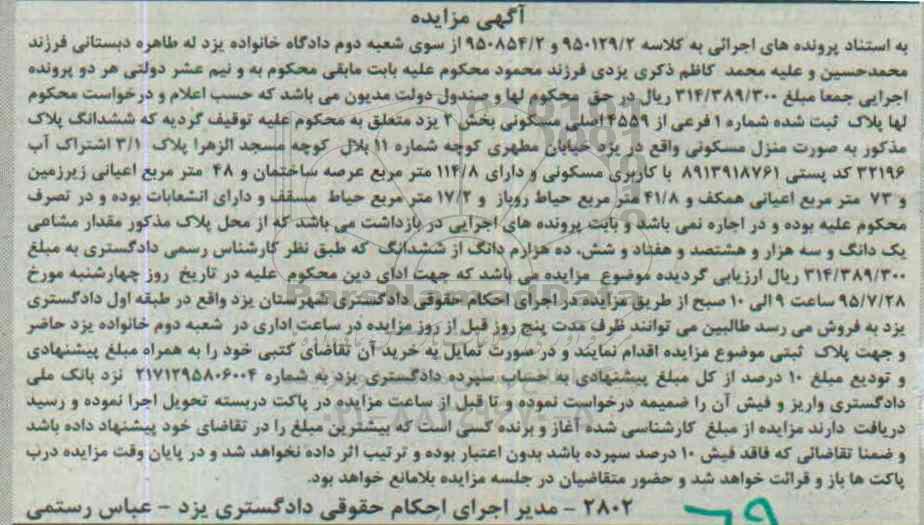 آگهی مزایده
به استناد پرونده های اجرائی به کلاسه ۹۵۰۱۲۹/۲ و ۹۵۰۸۵۴/۲ از سوی شعبه دوم دادگاه خانواده یزد له طاهره دبستانی فرزند
محمدحسین و علیه محمد کاظم ذکری یزدی فرزند محمود محکوم علیه بابت مابقی محکوم به و نیم عشر دولتی هر دو پرونده
اجرایی جمعا مبلغ ۳۱۴/۳۸۹/۳۰۰ ریال در حق محکوم لها و صندول دولت مدیون می باشد که حسب اعلام و درخواست محکوم
لها پلاک ثبت شده شماره ۱ فرعی از ۴۵۵۹ اصلی مسکونی بخش ۲ یزد متعلق به محکوم علیه توقیف گردیه که ششدانگ پلاک
مذکور به صورت منزل مسکونی واقع در یزد خیابان مطهری کوچه شماره ۱۱ بلال کوچه مسجد الزهرا پلاک ۳/۱ اشتراک آب
۳۲۱۹۶ کد پستی ۸۹۱۳۹۱۸۷۶۱ با کاربری مسکونی و دارای ۱۱۴/۸ متر مربع عرصه ساختمان و ۴۸ متر مربع اعیانی زیرزمین
و ۷۳ متر مربع اعیانی همکف و ۴۱/۸ متر مربع حیاط روباز و ۱۷/۲ متر مربع حیاط مسقف و دارای انشعابات بوده و در تصرف
محکوم علیه بوده و در اجاره نمی باشد و بابت پرونده های اجرایی در بازداشت می باشد که از محل پلاک مذکور مقدار مشاعی
یک دانگ و سه هزار و هشتصد و هفتاد و شش، ده هزارم دانگ از ششدانگ که طبق نظر کارشناس رسمی دادگستری به مبلغ
۳۱۴/۳۸۹/۳۰۰ ریال ارزیابی گردیده موضوع مزایده می باشد که جهت ادای دین محکوم علیه در تاریخ روز چهارشنبه مورخ
۹۵/۷/۲۸ ساعت ۹ الی ۱۰ صبح از طریق مزایده در اجرای احکام حقوقی دادگستری شهرستان یزد واقع در طبقه اول دادگستری
یزد به فروش می رسد طالبین می توانند ظرف مدت پنج روز قبل از روز مزایده در ساعت اداری در شعبه دوم خانواده یزد حاضر
و جهت پلاک ثبتی موضوع مزایده اقدام نمایند و در صورت تمایل به خرید آن تقاضای کتبی خود را به همراه مبلغ پیشنهادی
و تودیع مبلغ ۱۰ درصد از کل مبلغ پیشنهادی به حساب سپرده دادگستری یزد به شماره ۲۱۷۱۲۹۵۸۰۶۰۰۴ نزد بانک ملی
دادگستری واریز و فیش آن را ضمیمه درخواست نموده و تا قبل از ساعت مزایده در پاکت دربسته تحویل اجرا نموده و رسید
دریافت دارند مزایده از مبلغ کارشناسی شده آغاز و برنده کسی است که بیشترین مبلغ را در تقاضای خود پیشنهاد داده باشد
و ضمنا تقاضائی که فاقد فیش ۱۰ درصد سپرده باشد بدون اعتبار بوده و ترتیب اثر داده نخواهد شد و در پایان وقت مزایده درب
پاکت ها باز و قرائت خواهد شد و حضور متقاضیان در جلسه مزایده بلامانع خواهد بود.
۲۸۰۲ - مدیر اجرای احکام حقوقی دادگستری یزد - عباس رستمی